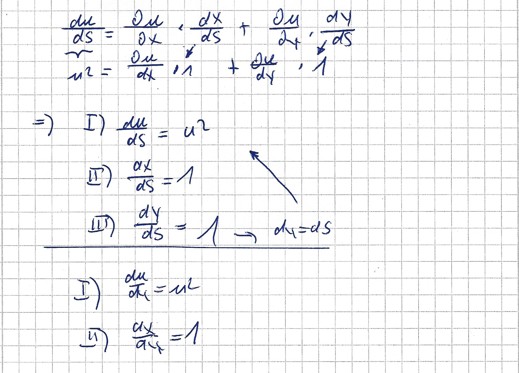 du/ds = ∂u/∂x · dx/ds + ∂u/∂y · dy/ds
u² = ∂u/dx · 1 + ∂u/dy · 1
=) I) du/ds = u²
II) dx/ds = 1
III) dy/ds = 1 → dy=ds
I) du/dy = u²
II) dx/dy = 1